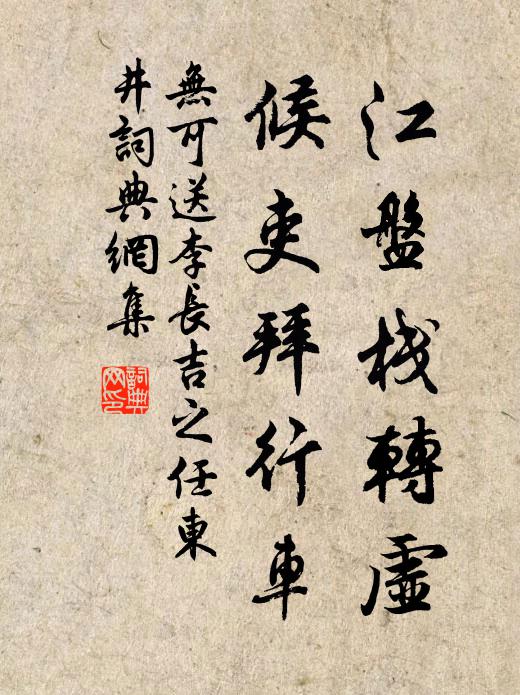 江盤棧轉虛
候吏拜行車
無可送李長吉之任東
井詞典網集
詞典网印